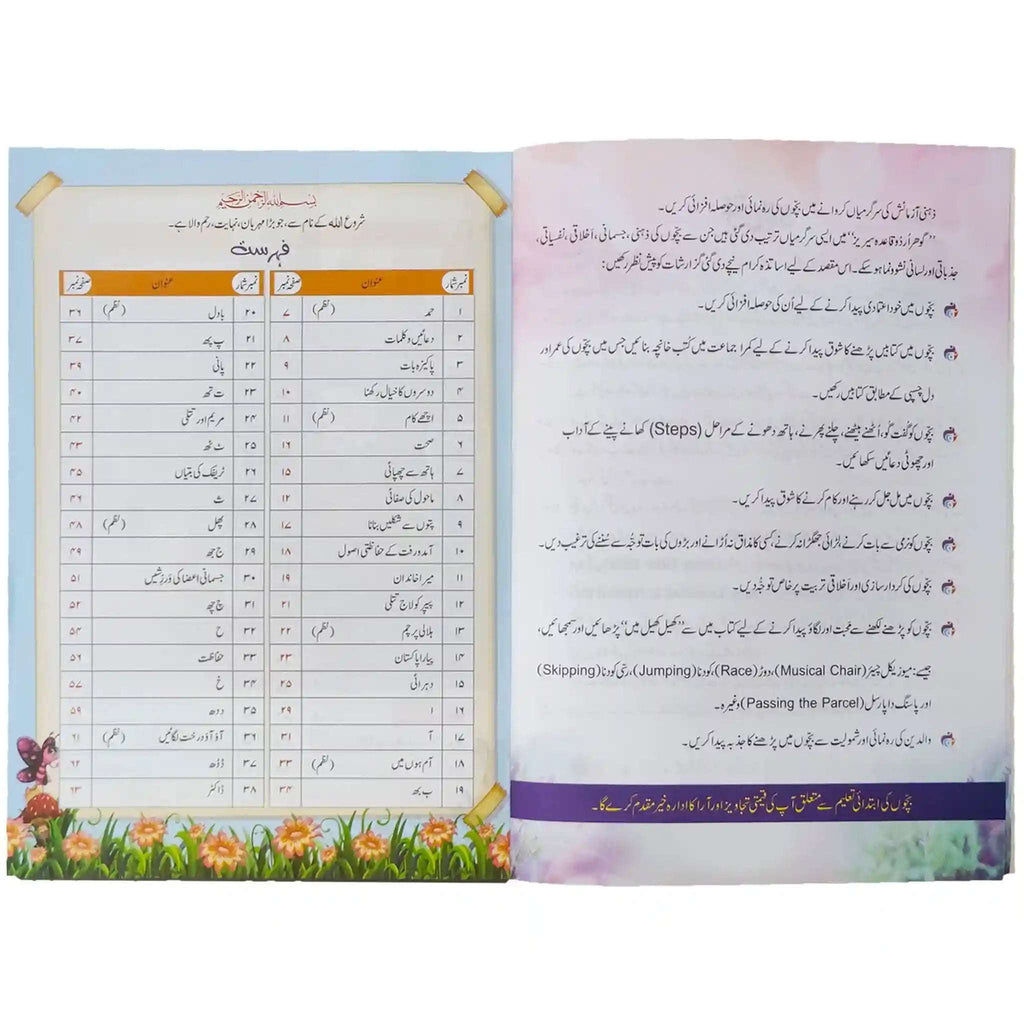 ذہنی آزمائش کی سرگرمیاں کروانے میں بچّوں کی رہ نمائی اور حوصلہ افزائی کریں۔
’’گوھر اُردُو قاعدہ سیریز‘‘ میں ایسی سرگرمیاں ترتیب دی گئی ہیں جن سے بچّوں کی ذہنی، جسمانی، اَخلاقی، نفسیاتی،
جذباتی اور لسانی نشوونما ہو سکے۔ اس مقصد کے لیے اساتذہ کرام نیچے دی گئی گزارشات کو پیشِ نظر رکھیں:
بچّوں میں خود اعتمادی پیدا کرنے کے لیے اُن کی حوصلہ افزائی کریں۔
بچّوں میں کتابیں پڑھنے کا شوق پیدا کرنے کے لیے کمرا جماعت میں کُتب خانچہ بنائیں جس میں بچّوں کی عمر اور
دل چسپی کے مطابق کتابیں رکھیں۔
بچّوں کو گُفت گُو، اُٹھنے بیٹھنے، چلنے پھرنے، ہاتھ دھونے کے مراحل (Steps) کھانے پینے کے آداب
اور چھوٹی دعائیں سکھائیں۔
بچّوں میں مل جل کر رہنے اور کام کرنے کا شوق پیدا کریں۔
بچّوں کو نرمی سے بات کرنے، لڑائی جھگڑا نہ کرنے، کسی کا مذاق نہ اُڑانے اور بڑوں کی بات توجّہ سے سُننے کی ترغیب دیں۔
بچّوں کی کردار سازی اور اَخلاقی تربیت پر خاص توجّہ دیں۔
بچّوں کو پڑھنے لکھنے سے محبت اور لگاؤ پیدا کرنے کے لیے کتاب میں سے ’’کھیل کھیل میں‘‘ پڑھائیں اور سمجھائیں،
جیسے: میوزیکل چیئر (Musical Chair)، دوڑ (Race)، کودنا (Jumping)، رسّی کودنا (Skipping)
اور پاسنگ دا پارسل (Passing the Parcel) وغیرہ۔
والدین کی رہ نمائی اور شمولیت سے بچّوں میں پڑھنے کا جذبہ پیدا کریں۔
بچّوں کی ابتدائی تعلیم سے متعلق آپ کی قیمتی تجاویز اور آرا کا ادارہ خیر مقدم کرے گا۔
بسم اللہ الرحمن الرحیم
شروع اللہ کے نام سے، جو بڑا مہربان، نہایت، رحم والا ہے۔
فہرست
نمبر شمار عنوان صفحہ نمبر
۱ حمد (نظم) ۷
۲ دعائیں و کلمات ۸
۳ پاکیزہ بات ۹
۴ دوسروں کا خیال رکھنا ۱۰
۵ اچھے کام (نظم) ۱۱
۶ صحت
۷ ہاتھ سے چھپائی ۱۵
۸ ماحول کی صفائی
۹ پتوں سے شکلیں بنانا ۱۷
۱۰ آمد و رفت کے حفاظتی اصول ۱۸
۱۱ میرا خاندان ۱۹
۱۲ پیپر کولاج تتلی ۲۱
۱۳ ہلالی پرچم (نظم) ۲۲
۱۴ پیارا پاکستان ۲۳
۱۵ دہرائی ۲۵
۱۶ ا ۲۹
۱۷ آ ۳۱
۱۸ آم ہوں میں (نظم) ۳۳
۱۹ ب بھ ۳۴
نمبر شمار عنوان صفحہ نمبر
۲۰ بادل (نظم) ۳۶
۲۱ پ پھ ۳۷
۲۲ پانی ۳۹
۲۳ ت تھ ۴۰
۲۴ مریم اور تتلی ۴۲
۲۵ ٹ ٹھ ۴۳
۲۶ ٹریفک کی بتیاں ۴۵
۲۷ ث ۴۶
۲۸ پھل (نظم) ۴۸
۲۹ ج جھ ۴۹
۳۰ جسمانی اعضا کی ورزشیں ۵۱
۳۱ چ چھ ۵۲
۳۲ ح ۵۴
۳۳ حفاظت ۵۶
۳۴ خ ۵۷
۳۵ د دھ ۵۹
۳۶ آؤ آؤ درخت لگائیں (نظم) ۶۱
۳۷ ڈ ڈھ ۶۲
۳۸ ڈاکٹر ۶۳